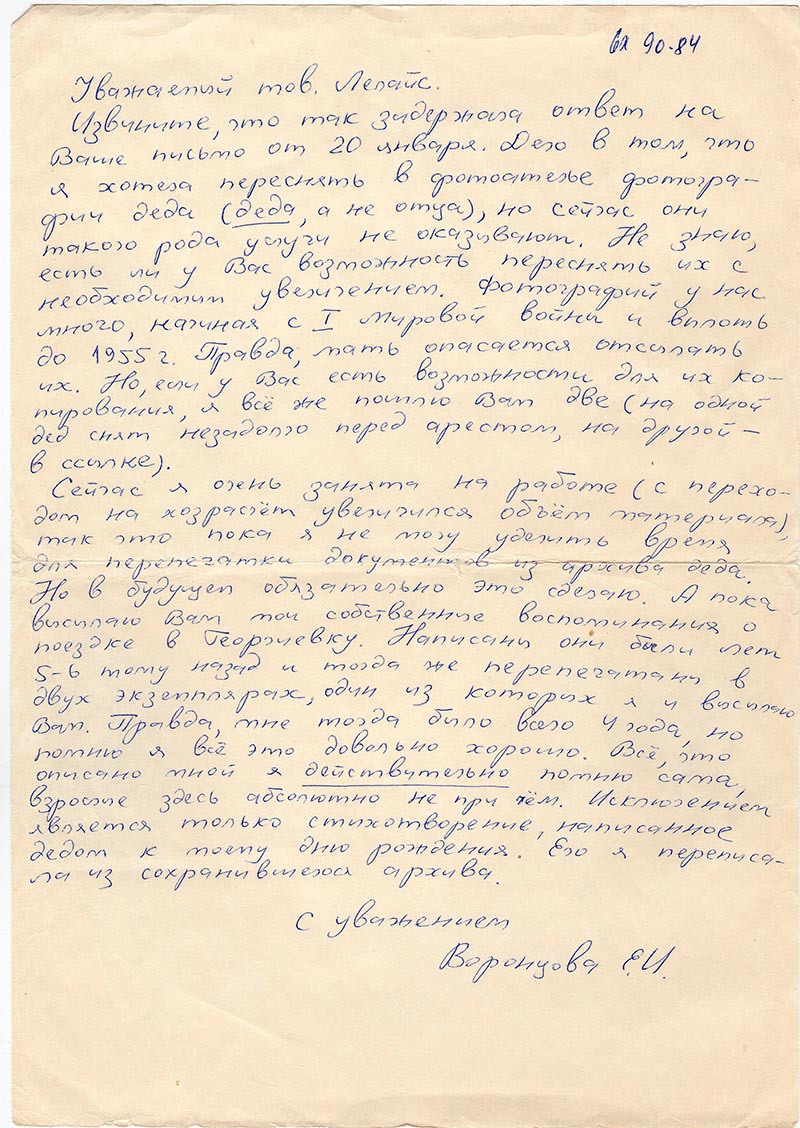 вх 90-84
Уважаемый тов. Лепайс.
Извините, что так задержала ответ на
Ваше письмо от 20 января. Дело в том, что
я хотела переснять в фотоателье фотогра-
фии деда (деда, а не отца), но сейчас они
такого рода услуги не оказывают. Не знаю,
есть ли у Вас возможность переснять их с
необходимым увеличением. Фотографий у нас
много, начиная с I Мировой войны и вплоть
до 1955 г. Правда, мать опасается отсылать
их. Но, если у Вас есть возможности для их ко-
пирования, я всё же пошлю Вам две (на одной
дед снят незадолго перед арестом, на другой –
в ссылке).
Сейчас я очень занята на работе (с перехо-
дом на хозрасчёт увеличился объём материала),
так что пока я не могу уделить время
для перепечатки документов из архива деда.
Но в будущем обязательно это сделаю. А пока
высылаю Вам мои собственные воспоминания о
поездке в Георгиевку. Написаны они были лет
5-6 тому назад и тогда же перепечатаны в
двух экземплярах, один из которых я и высылаю
Вам. Правда, мне тогда было всего 4 года, но
помню я всё это довольно хорошо. Всё, что
описано мной я действительно помню сама,
взрослые здесь абсолютно не при чём. Исключением
является только стихотворение, написанное
дедом к моему дню рождения. Его я переписа-
ла из сохранившегося архива.
С уважением
Воронцова Е.И.